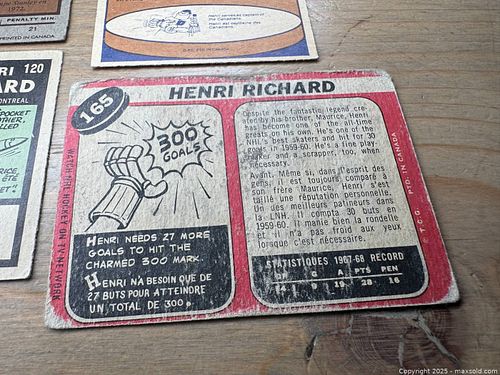 1972.
PENALTY MIN.
21
PRINTED IN CANADA
Henri serves as captain of
the Canadiens.
Henri est capitaine
des Canadiens.
RI 120
ARD
MONTREAL
POCKET
165
HENRI RICHARD
300
GOALS
HENRI NEEDS 27 MORE
GOALS TO HIT THE
CHARMED 300 MARK.
HENRI N'A BESOIN QUE DE
27 BUTS POUR ATTEINDRE
UN TOTAL DE 300.
Despite the fantastic legend cre-
ated by his brother, Maurice, Henri
has become one of the all-time
greats on his own. He's one of the
NHL's best skaters and hit for 30
goals in 1959-60. He's a fine play-
maker and a scrapper, too, when
necessary.
Avant, Même si, dans l'esprit des
gens, il est toujours comparé à
son frère Maurice, Henri s'est
taillé une réputation personnelle.
Un des meilleurs patineurs dans
la LNH. Il compta 30 buts en
1959-60. Il manie bien la rondelle
et il n'a pas froid aux yeux
lorsque c'est nécessaire.
STATISTIQUES 1967-68 RECORD
G A PTS PEN
9 19 28 16
WATCH THE HOCKEY ON TV NETWORK
© T.C.G. PTD. IN CANADA
Copyright 2025 - maxsold.com